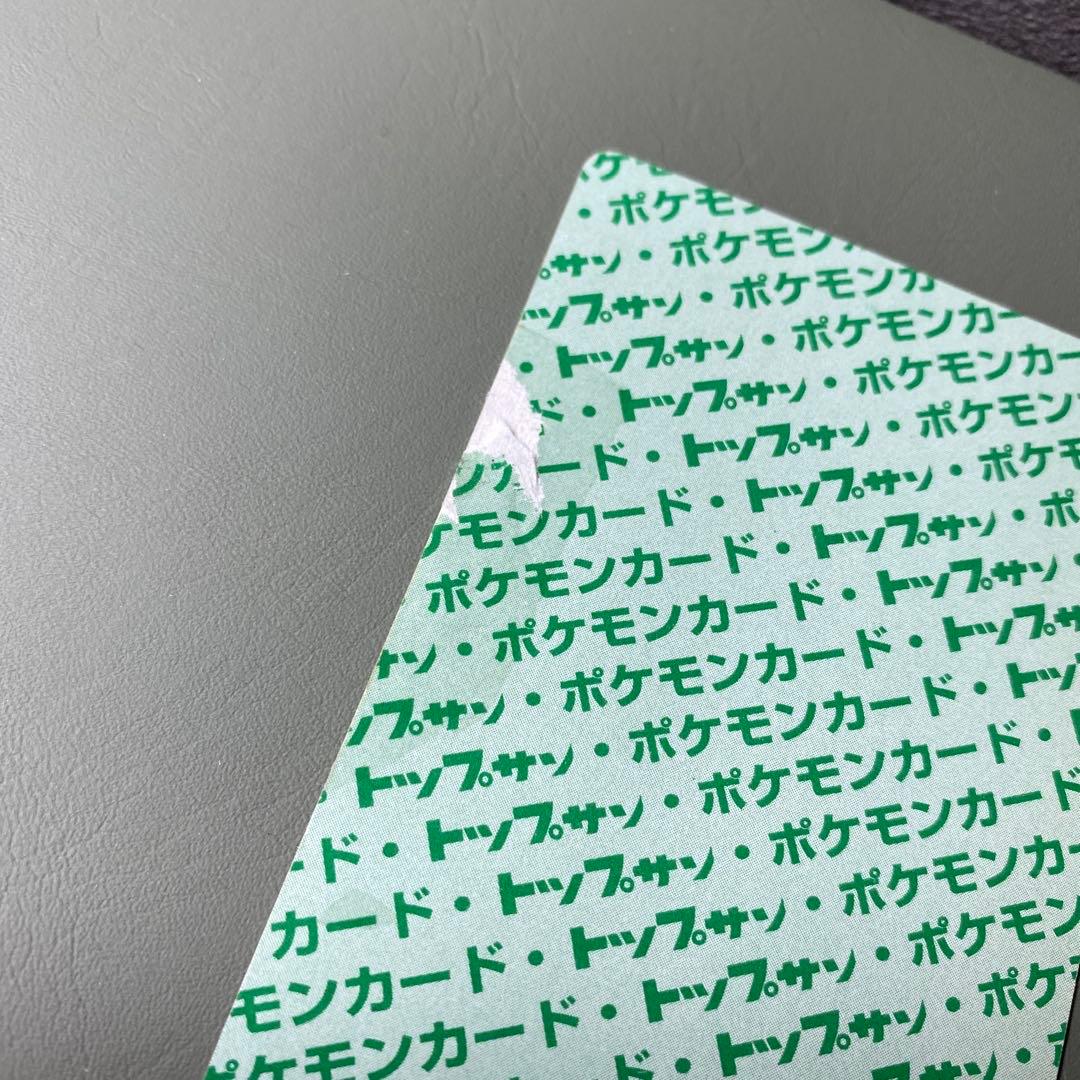 ケモ
・ポケモ
サン・ポケモン
ップサン・ポケモンカ
・トップサン・ポケモンカー
ド・トップサン・ポケモンカー
ンカード・トップサン・ポケモン
ケモンカード・トップサン・ポケモ
ポケモンカード・トップサン・ポ
サン・ポケモンカード・トップサン・
ップサン・ポケモンカード・トップサ
トップサン・ポケモンカード・トッ
ード・トップサン・ポケモンカード・ト
カード・トップサン・ポケモンカード
モンカード・トップサン・ポケモンカー
ポケモンカード・トップサン・ポケモン
・ポケモンカード・トップサン・ポケ